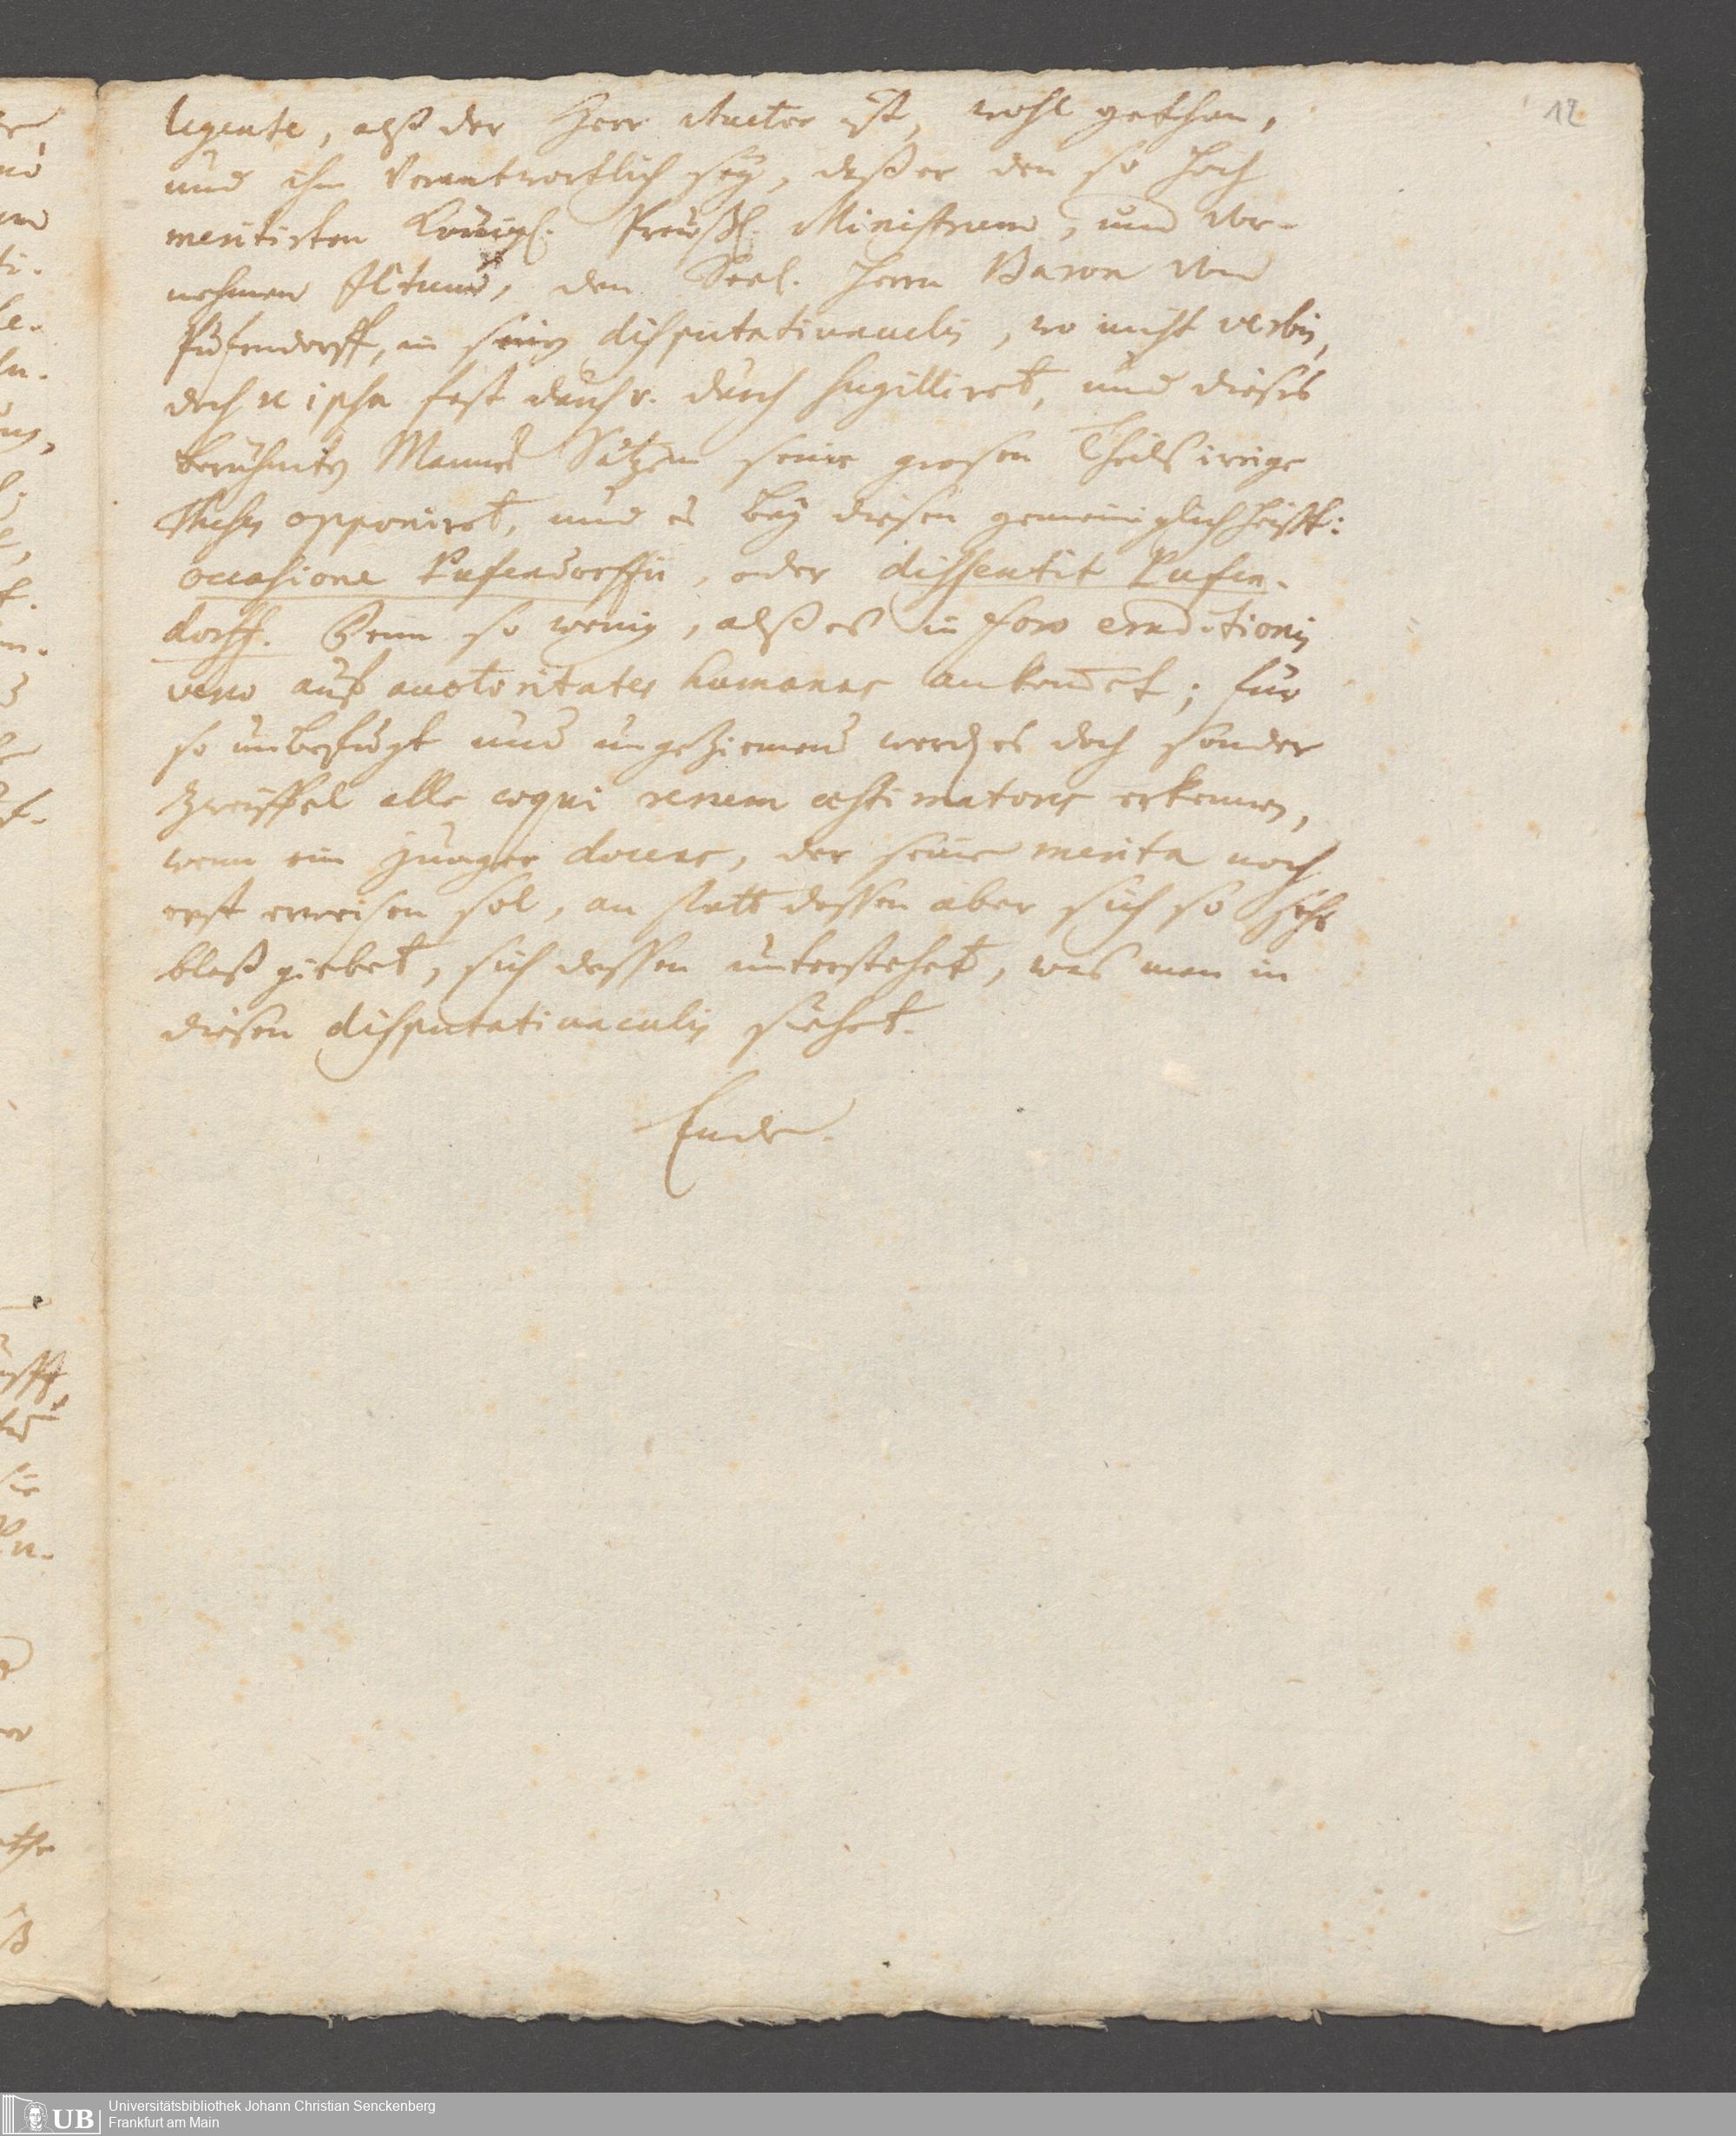 12
legente, alß der Herr Auctor ist, wohl gethan,
und ihm Verantwortlich sey, daß er den so hoch
meritirten Königl. Preußl. Ministrum, und Vor-
nehmen Ictum, den Seel. Herrn Baron Von
Pufendorff, in seinen disputatiunculis, wo nicht verbis,
doch re ipsa fast durch v. durch sugilliret, und dieses
berühmten Mannes Sätzen seine grosen Theils irrige
Theses opponiret, und es bey diesen gemeiniglich heist:
occasione Pufendorffii, oder dissentit Pufen-
dorff. Denn so wenig, alß es in foro eruditionis
vero auf auctoritates humanas ankomet; für
so unbefugt und ungeziemend werden es doch sonder
Zweiffel alle aequi rerum aestimatores erkennen,
wenn ein junger docens, der seine merita noch
erst erweisen sol, an statt dessen aber sich so sehr
bloß giebet, sich dessen unterstehet, was man in
diesen disputatiunculis siehet.
Ende.
UB
Universitätsbibliothek Johann Christian Senckenberg
Frankfurt am Main